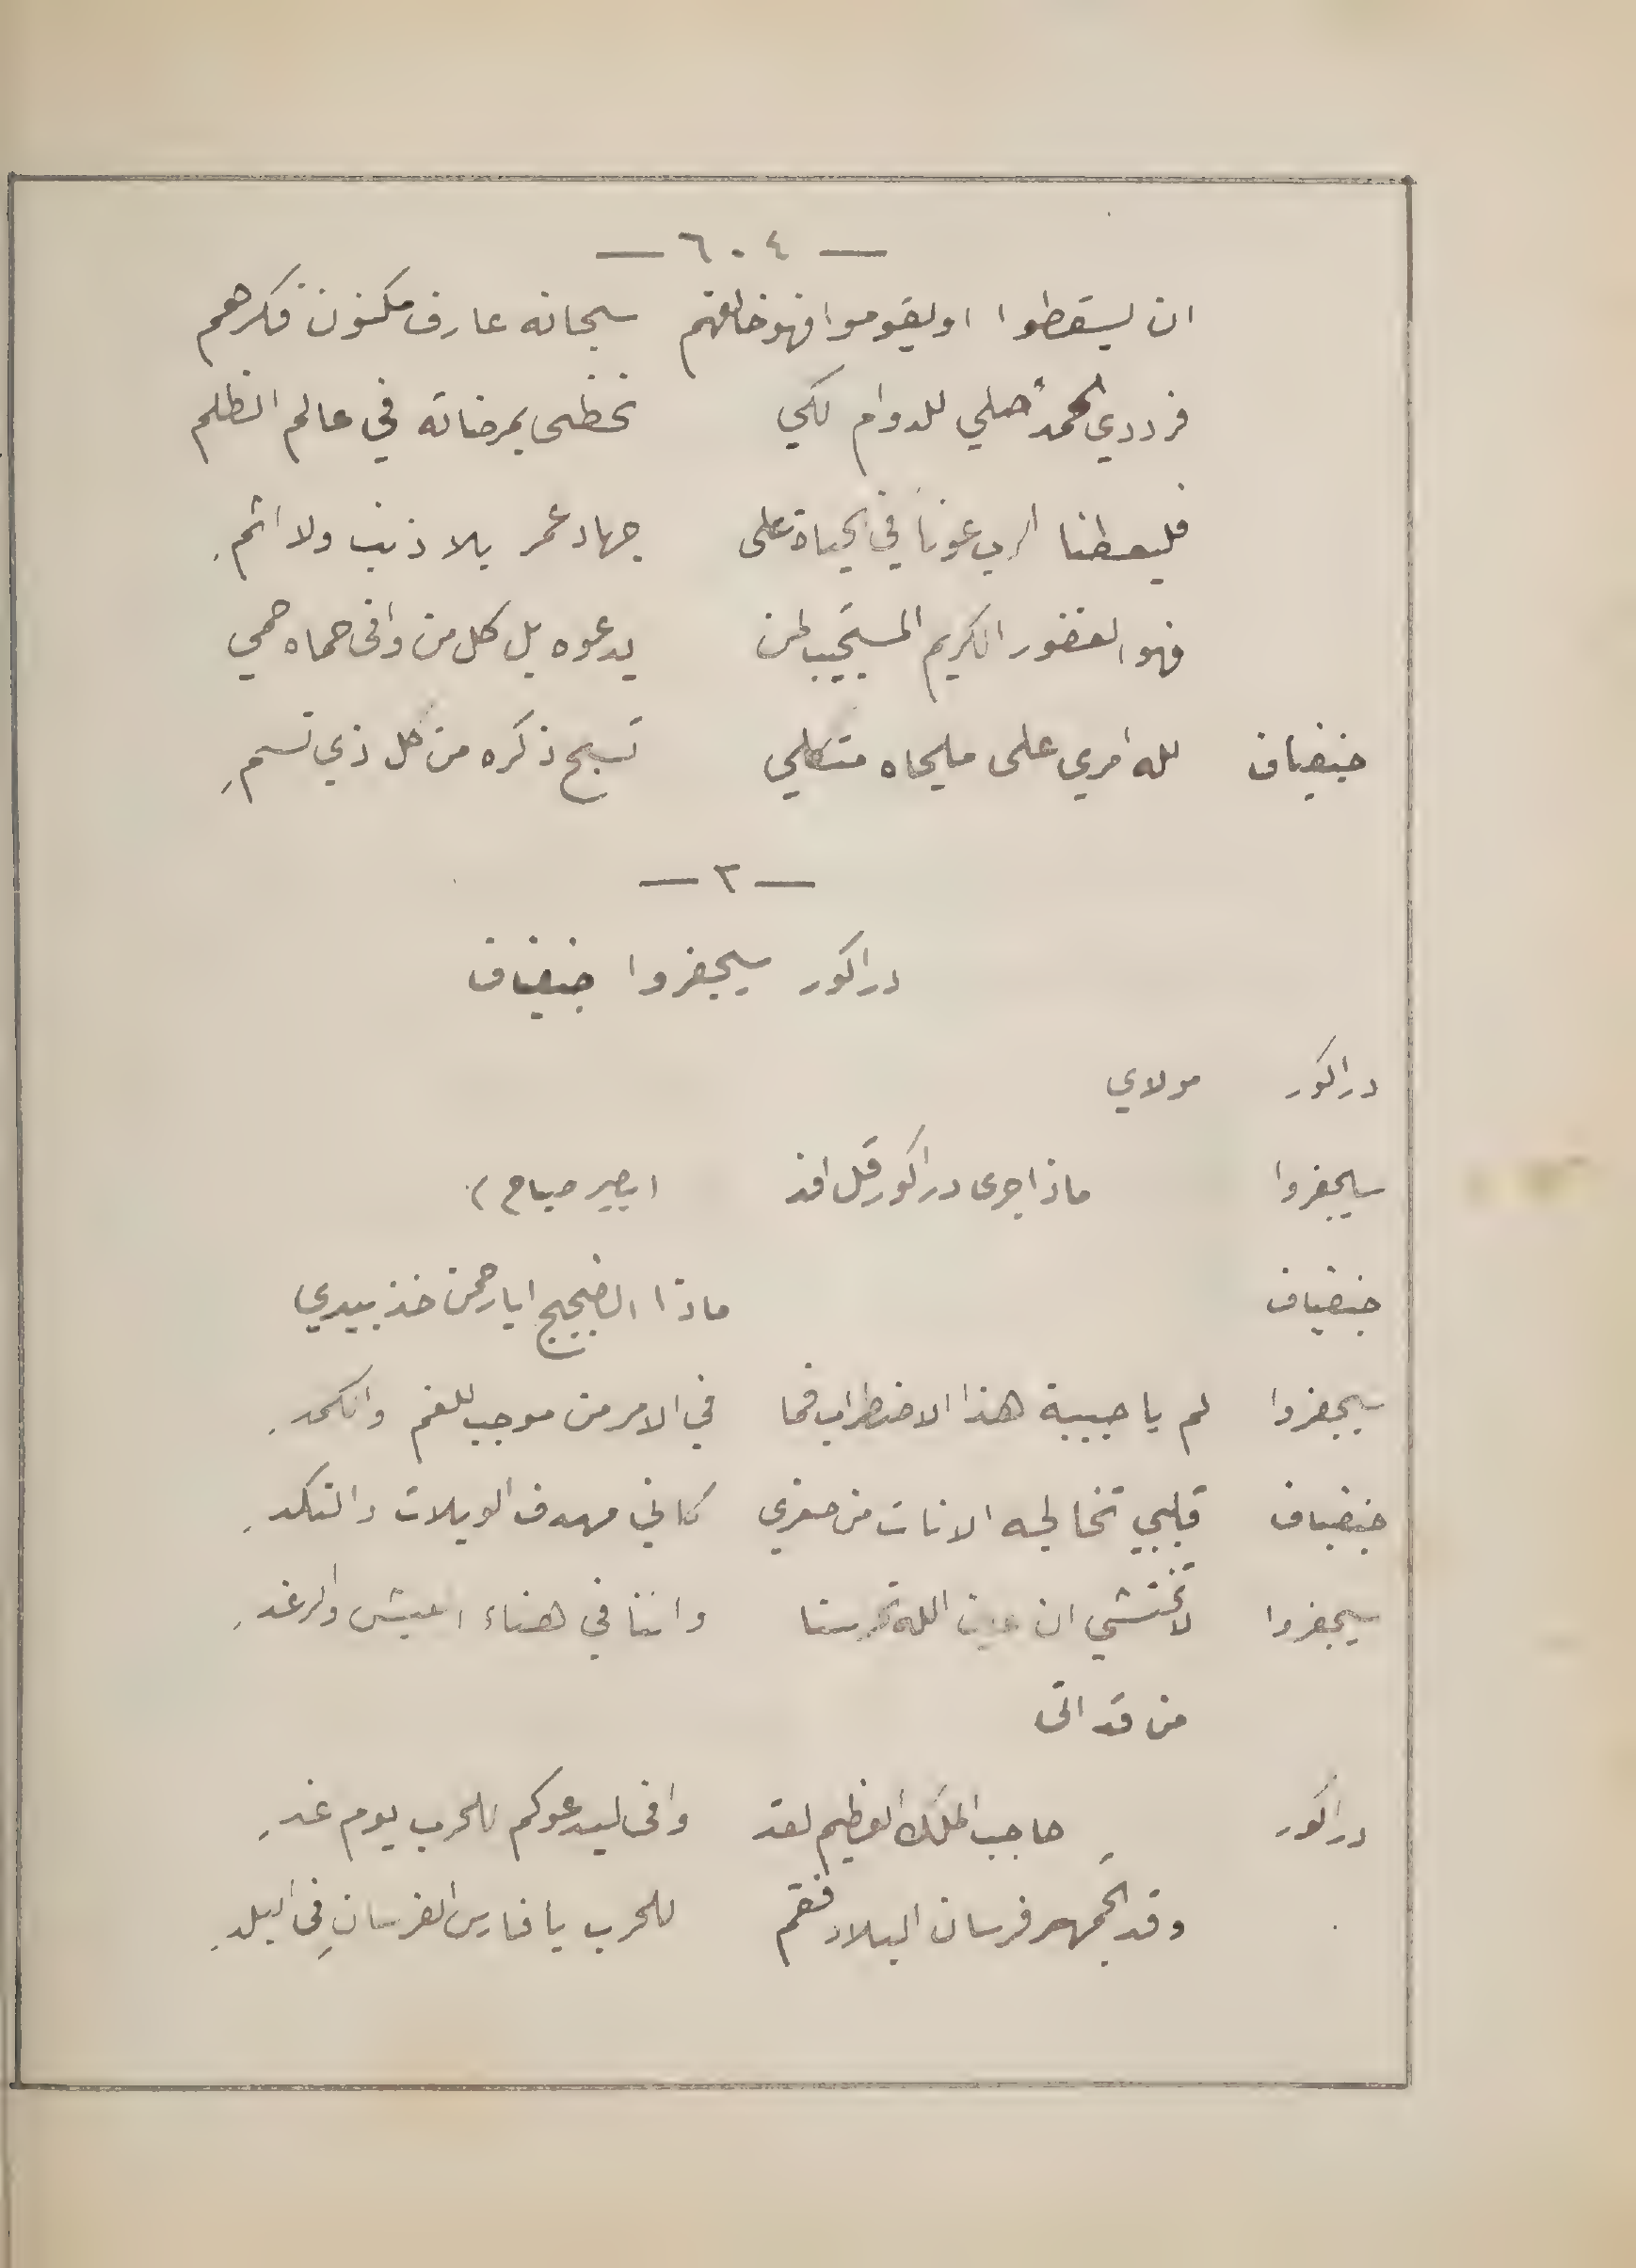 — ٦٠٤ —
ان يسقطوا او يقوموا فهو خالقهم سبحانه عارف مكنون فكرهم
فرددي الحمد أصلي للدوام لكي نحظى بمرضاته في عالم الظلم
فليعطنا الرب عوناً في الحياة على جهاد عمر بلا ذنب ولا اثم
فهو الغفور الكريم المستجيب لمن يدعوه بل كل من وافى حماه حمي
جنفياف لله امري على ملجاه متكلي تسبح ذكره من كل ذي نسم
— ٣ —
دراكور سيجفروا جنفياف
دراكور مولاي
سيجفروا ماذا جرى دراكور قل افذ ايصير صباح )
جنفياف ماذا الضجيج ايا رحمن خذ بيدي
سيجفروا لم يا حبيبة هذا الاضطراب فما في الامر من موجب للغم والكمد
جنفياف قلبي تخالجه الانات من صغري كاني مهدف الويلات والنكد
سيجفروا لا تختشي ان عين الله تحرسنا واننا في هناء العيش والرغد
من قد اتى
دراكور حاجب الملك العظيم لقد وافى ليدعوكم للحرب يوم غد
وقد تجمهر فرسان البلاد فقم للحرب يا فارس الفرسان في البلد